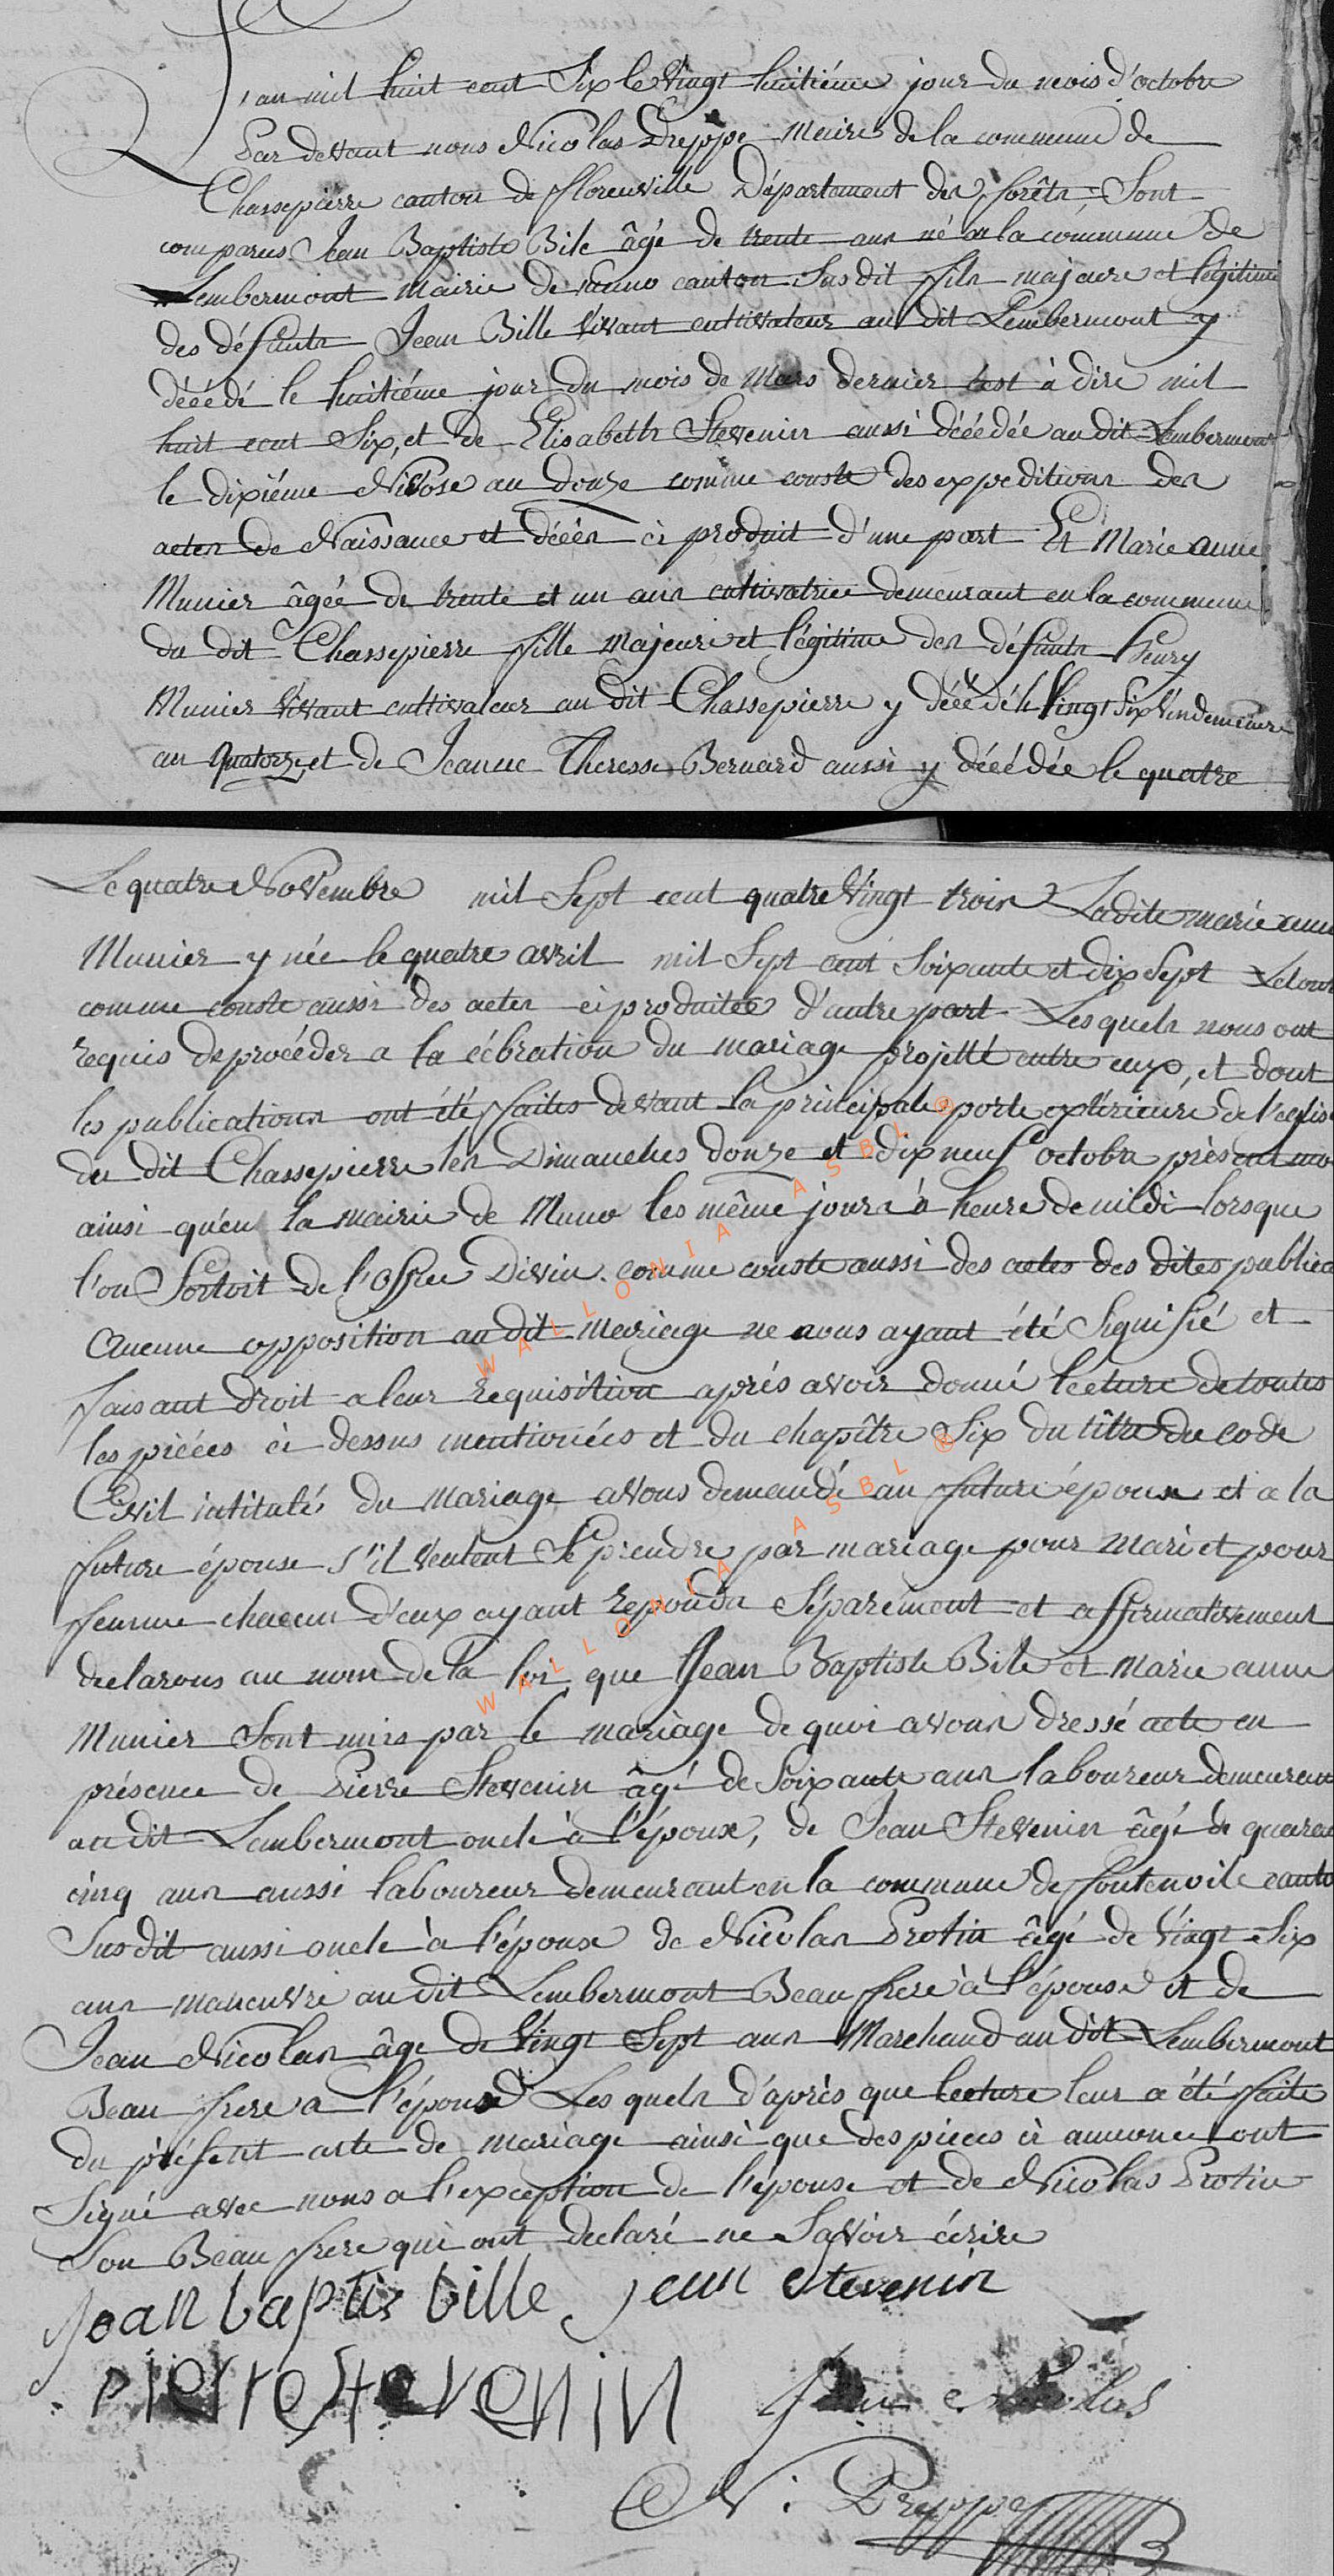 L'an mil huit cent Six le Vingt huitiéme jour du mois d'octobre
Par devant nous Nicolas Dreppe Maire de la commune de
Chassepierre canton de fflorenville Département des fforêts Sont
comparus Jean Baptiste Bile âgé de trente ans né en la commune de
Lembermont Mairie de Muno canton Susdit ffils majeure et légitime
des défunts Jean Bille Vivant cultivateur au dit Lembermont y
décédé le huitiéme jour du mois de Mars dernier cest à dire mil
huit cent Six, et de Elisabeth Stevenin aussi décédée au dit Lembermont
le dixiéme Nivôse an douze comme conste des expeditions des
actes de Naissance et décés ci produit d'une part Et Marie anne
Munier âgée de trente et un ans cultivatrice demeurant en la commune
du dit Chassepierre ffille Majeure et légitime des défunts henry
Munier Vivant cultivateur au dit Chassepierre y décédé le Vingt Six Vindemiaire
an quatorze, et de Jeanne Theresse Bernard aussi y décédée le quatre
Le quatre Novembre mil Sept cent quatre Vingt trois Ladite marie anne
Munier y née le quatre avril mil Sept cent Soixante et dix Sept Le tout
comme conste aussi des actes ci produitée d'autre part Lesquels nous ont
requis de procéder a la célbration du mariage projetté entre eux, et dont
les publications ont été ffaites devant la principale porte extérieure de l'eglise
du dit Chassepierre les Dimanches douze et dix neuf octobre présent mo
ainsi qu'en la mairie de Muno les même jours à heure de midi lorsque
l'on Sortoit de l'Office Divin. comme conste aussi des actes des dites publica
Aucune opposition au dit Mariage ne nous ayant été Signifié et
ffaisant droit a leur requisition aprés avoir donné lecture de toutes
les piéces ci dessus mentionées et du chapître Six du tître du code
Civil intitulé du Mariage avons demandé au ffuture époux et a la
ffuture épouse s'il Veulent Se prendre par mariage pour Mari et pour
ffemme chacun d'eux ayant repondu Séparement et affirmativement
declarons au nom de la loi que Jean Baptiste Bile et Marie anne
Munier Sont unis par le mariage de quoi avons dressé acte en
présence de Pierre Stevenin âgé de Soixante ans laboureur demeurant
au dit Lembermont oncle à l'époux, de Jean Stevenin âgé de quarante
cinq ans aussi laboureur demeurant en la commune de ffontenoile canto
Susdit aussi oncle à l'époux de Nicolas Protin âgé de Vingt Six
ans maneuvre au dit Lembermont Beau ffrere à l'épouse et de
Jean Nicolas âge de Vingt Sept ans Marchand au dit Lembermont
Beau ffrere a l'épouse Les quels d'après que lecture leur a été ffaite
du présent acte de mariage ainsi que des pieces ci annoncé ont
Signé avec nous a l'exception de l'épouse et de Nicolas Protin
Son Beau ffrere qui ont declaré ne Savoir écrire
Jean baptis bille Jean Stevenin
pierre Stevenin Jean Nicolas
N. Dreppe
WALLONIA ASBL ®
WALLONIA ASBL ®